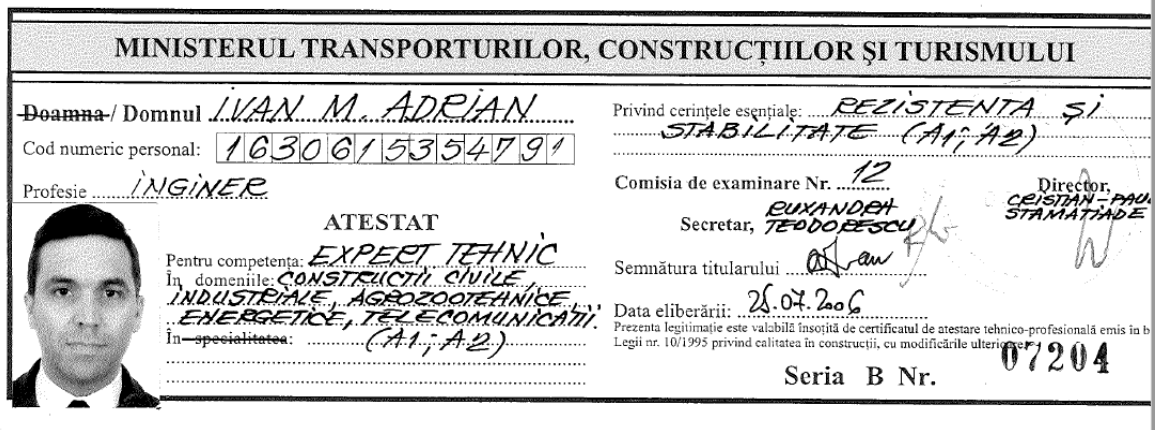 MINISTERUL TRANSPORTURILOR, CONSTRUCȚIILOR ȘI TURISMULUI
Doamna / Domnul IVAN M. ADRIAN
Cod numeric personal: 1630615354791
Profesie INGINER
ATESTAT
Pentru competența: EXPERT TEHNIC
În domeniile: CONSTRUCTII CIVILE,
INDUSTRIALE, AGROZOOTEHNICE,
ENERGETICE, TELECOMUNICATII.
În specialitatea: (A1; A2)
Privind cerințele esențiale: REZISTENTA ȘI
STABILITATE (A1; A2)
Comisia de examinare Nr. 12
Director,
CRISTIAN-PAU
STAMATIADE
RUXANDRA
Secretar, TEODORESCU
Semnătura titularului
Data eliberării: 25.07.2006
Prezenta legitimație este valabilă însoțită de certificatul de atestare tehnico-profesională emis în b
Legii nr. 10/1995 privind calitatea în construcții, cu modificările ulterioare
Seria B Nr. 07204